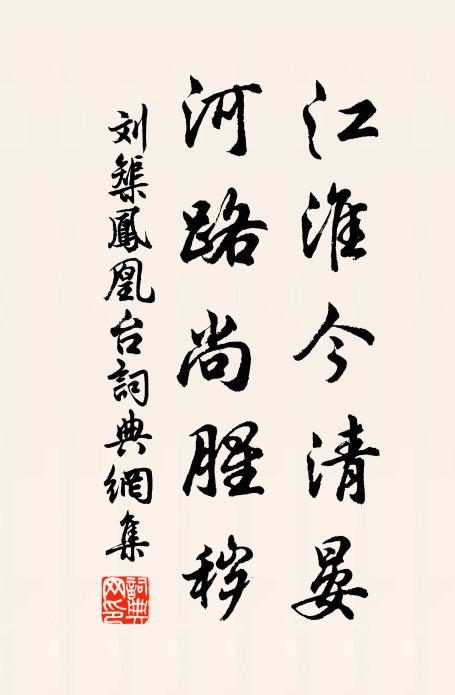 江淮今清晏
河路尚腥秽
刘槩鳳凰台詞典網集
詞典網印